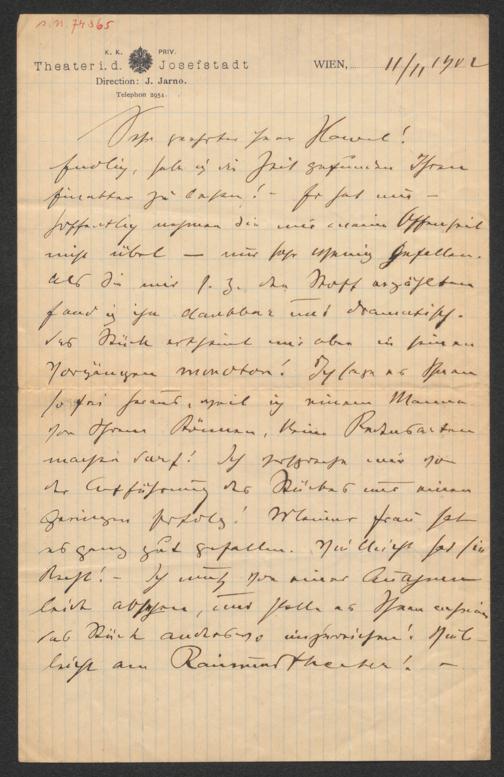 A.N. 74365
K. K. PRIV.
Theater i. d. Josefstadt
Direction: J. Jarno.
Telephon 2951.
WIEN, 11/11 1902
Sehr geehrter Herr Hawel!
Endlich, habe ich die Zeit gefunden Ihren
Einakter zu lesen! – Er hat mir –
hoffentlich nehmen Sie mir meine Offenheit
nicht übel – nur sehr wenig gefallen.
Als Sie mir s. Z. den Stoff erzählten
fand ich ihn dankbar und dramatisch.
Das Stück erscheint mir aber in seinen
Vorgängen monoton! Ich sage es Ihnen
so frei heraus, weil ich einem Manne
von Ihrem Können, keine Redensarten
machen darf! Ich verspreche mir von
der Aufführung des Stückes nur einen
geringen Erfolg! Meiner Frau hat
es ganz gut gefallen. Vielleicht hat sie
Recht! – Ich muß von einer Annahme
leider absehen, und stelle es Ihnen anheim
das Stück anderswo einzureichen! Viel-
leicht am Raimundtheater! –